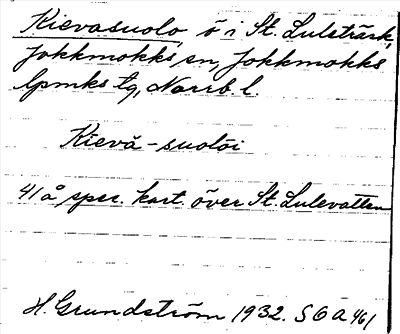 Kievasuolo, ö i St. Luleträsk,
Jokkmokks sn, Jokkmokks
lpmks tg, Norrb. l.
Kievā-suolōi
41 å spec. kart. över St. Lulevatten
H. Grundström 1932. SOA 461